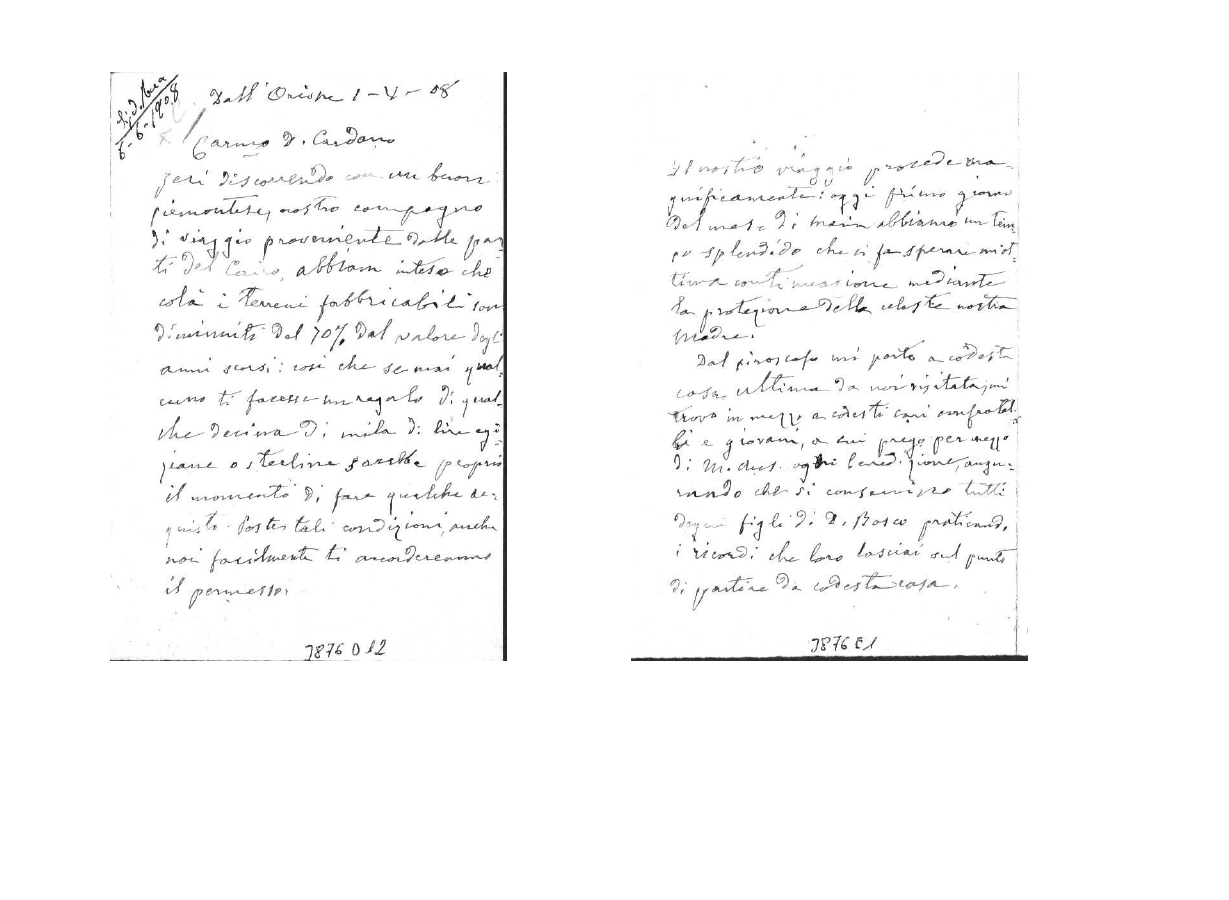 6-6-1908
Dall'Orione 1-V-08
Carmo D. Cardano
Jeri discorrendo con un buon
piemontese, nostro compagno
di viaggio proveniente dalle par-
ti del Cairo, abbiam inteso che
colà i terreni fabbricabili son
diminuiti del 70% dal valore degli
anni scorsi: così che se mai qual-
cuno ti facesse un regalo di qual-
che decina di mila di lire egi-
ziane o sterline sarebbe proprio
il momento di fare qualche ac-
quisto. Postes tali condizioni, anche
noi facilmente ti accorderemmo
il permesso.
3876 D12
Il nostro viaggio procede ma-
gnificamente: oggi primo giorno
del mese di maria abbiamo un tem-
po splendido che ci fa sperare un'ot-
tima continuazione mediante
la protezione della celeste nostra
Madre.
Dal piroscafo mi porto a codesta
casa, ultima da noi visitata, mi
trovo in mezzo a codesti cari confratel-
li e giovani, a cui prego per mezzo
di M. Aus. ogni benedizione, augu-
rando che si conservino tutti
degni figli di D. Bosco praticando
i ricordi che loro lasciai sul punto
di partire da codesta casa.
3876 E1